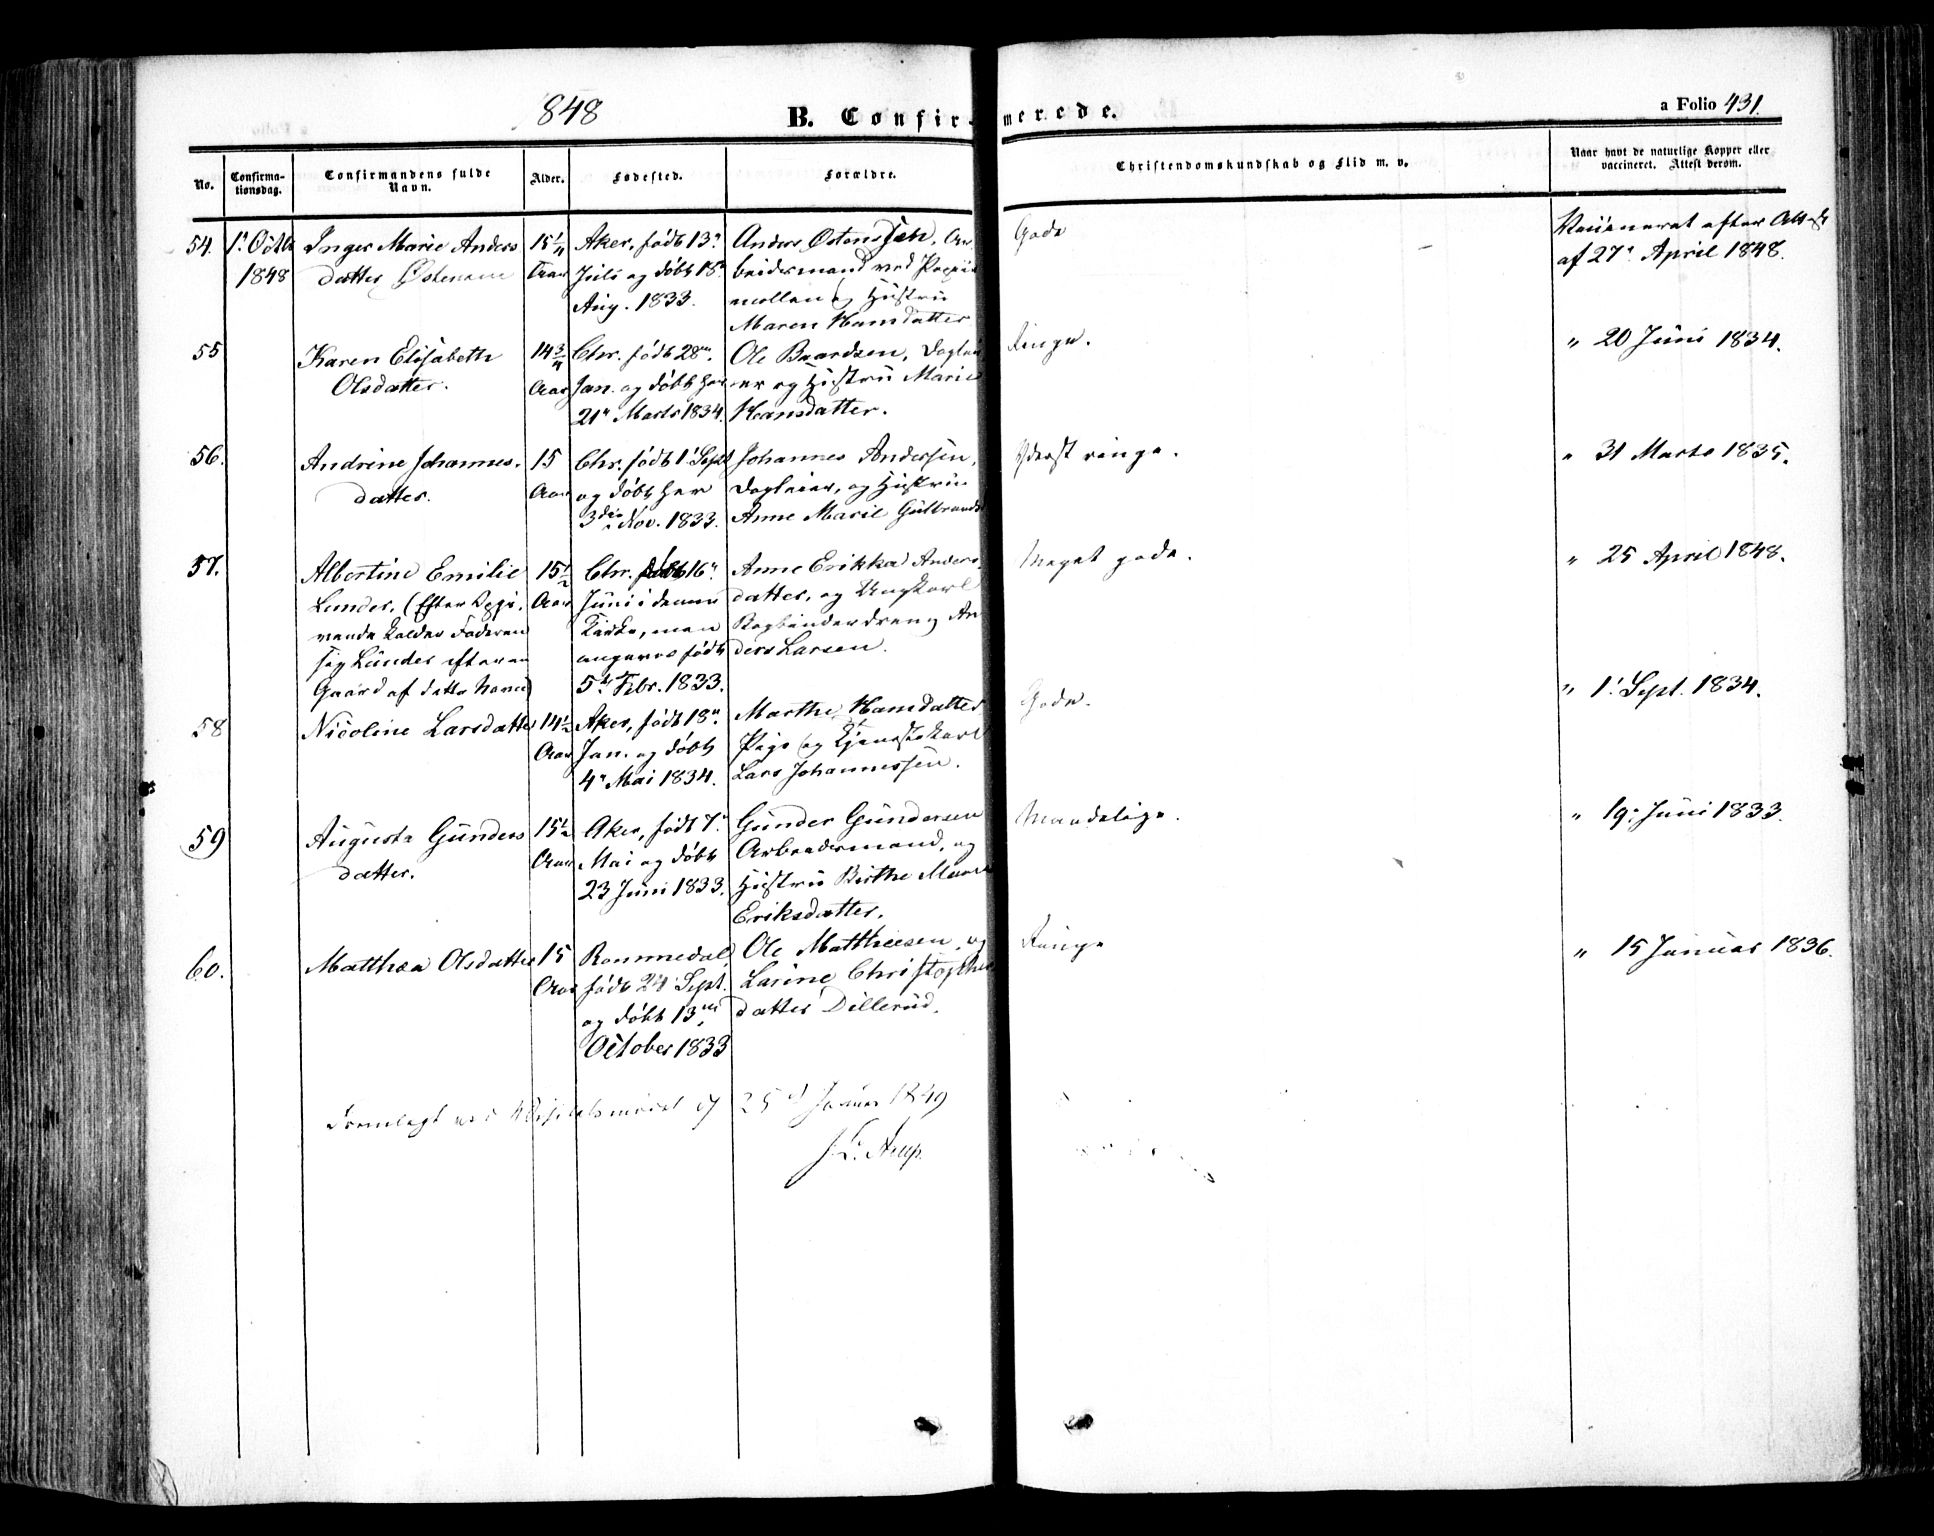 1848
B. Confirmerede.
a Folio 431.
No.
Confirma-
tionsdag.
Confirmandens fulde
Navn.
Alder.
Fødested.
Forældre.
Christendomskundskab og Flid m. v.
Naar havt de naturlige Kopper eller
vaccineret. Attest derom.
54. 1' Octbr
1848
Inger Marie Anders
datter Østensen
15 1/4
Aar
Aker, født 13'
Juli og døbt 18'
Aug. 1833.
Anders Østensen, Ar-
beidsmand ved Papir
møllen og Hustru
Maren Hansdatter
Gode
Vaccineret efter Attest
af 27' April 1848.
55
Karen Elisabeth
Olsdatter.
14 3/4
Aar
Chr. født 28de
Jan. og døbt her
21' Marts 1834.
Ole Baardsen, Daglei-
er og Hustru Marie
Hansdatter.
Ringe.
" 20 Juni 1834.
56.
Andrine Johannes-
datter.
15
Aar
Chr. født 1' Sept
og døbt her
3die Nov. 1833.
Johannes Andersen,
Dagleier, og Hustru
Anne Marie Gulbrandsd
Yderst ringe.
" 31 Marts 1835.
57.
Albertine Emilie
Lunder. (Efter Opgi-
vende kalder Faderen
sig Lunder efter en
Gaard af dette Navn)
15 1/2
Aar
Chr. døbt 16'
Juni i denne
Kirke, men
angives født
5te Febr. 1833.
Anne Erikka Anders-
datter, og Ungkarl
Bogbinderdreng An-
ders Larsen.
Meget gode.
" 25 April 1848.
58
Nicoline Larsdatter
14 1/2
Aar
Aker, født 18'
Jan. og døbt
4' Mai 1834.
Marthe Hansdatter
Pige og Tjenestekarl
Lars Johannessen.
Gode.
" 1' Sept. 1834.
59
Augusta Gunders
datter.
15 1/2
Aar
Aker, født 7'
Mai og døbt
23 Juni 1833.
Gunder Gundersen
Arbeidsmand, og
Hustru Birthe Marie
Eriksdatter.
Maadelige.
" 19' Juni 1833.
60.
Matthea Olsdatter
15
Aar
Rommedal,
født 24' Sept.
og døbt 13de
October 1833
Ole Matthiesen, og
Larine Christopher
datter Dillerud.
Ringe
" 15 Januar 1836.
Fremlagt ved 25d Januar 1849
J. L. Arup.